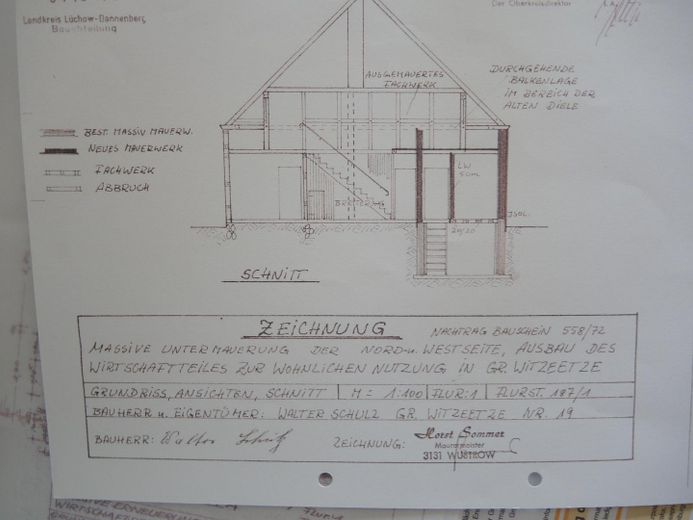 Landkreis Lüchow-Dannenberg
Bauabteilung
Der Oberkreisdirektor
AUSGEMAUERTES
FACHWERK
DURCHGEHENDE
BALKENLAGE
IM BEREICH DER
ALTEN DIELE
BEST. MASSIV MAUERW.
NEUES MAUERWERK
FACHWERK
ABBRUCH
LW
5cm
ISOL.
20/20
SCHNITT
ZEICHNUNG NACHTRAG BAUSCHEIN 558/72
MASSIVE UNTERMAUERUNG DER NORD-U. WESTSEITE, AUSBAU DES
WIRTSCHAFTTEILES ZUR WOHNLICHEN NUTZUNG IN GR. WITZEETZE
GRUNDRISS, ANSICHTEN, SCHNITT M = 1:100 FLUR:1 FLURST. 187/1
BAUHERR U. EIGENTÜMER: WALTER SCHULZ GR. WITZEETZE NR. 19
BAUHERR: Walter Schulz ZEICHNUNG: Horst Sommer
Maurermeister
3131 WUSTROW